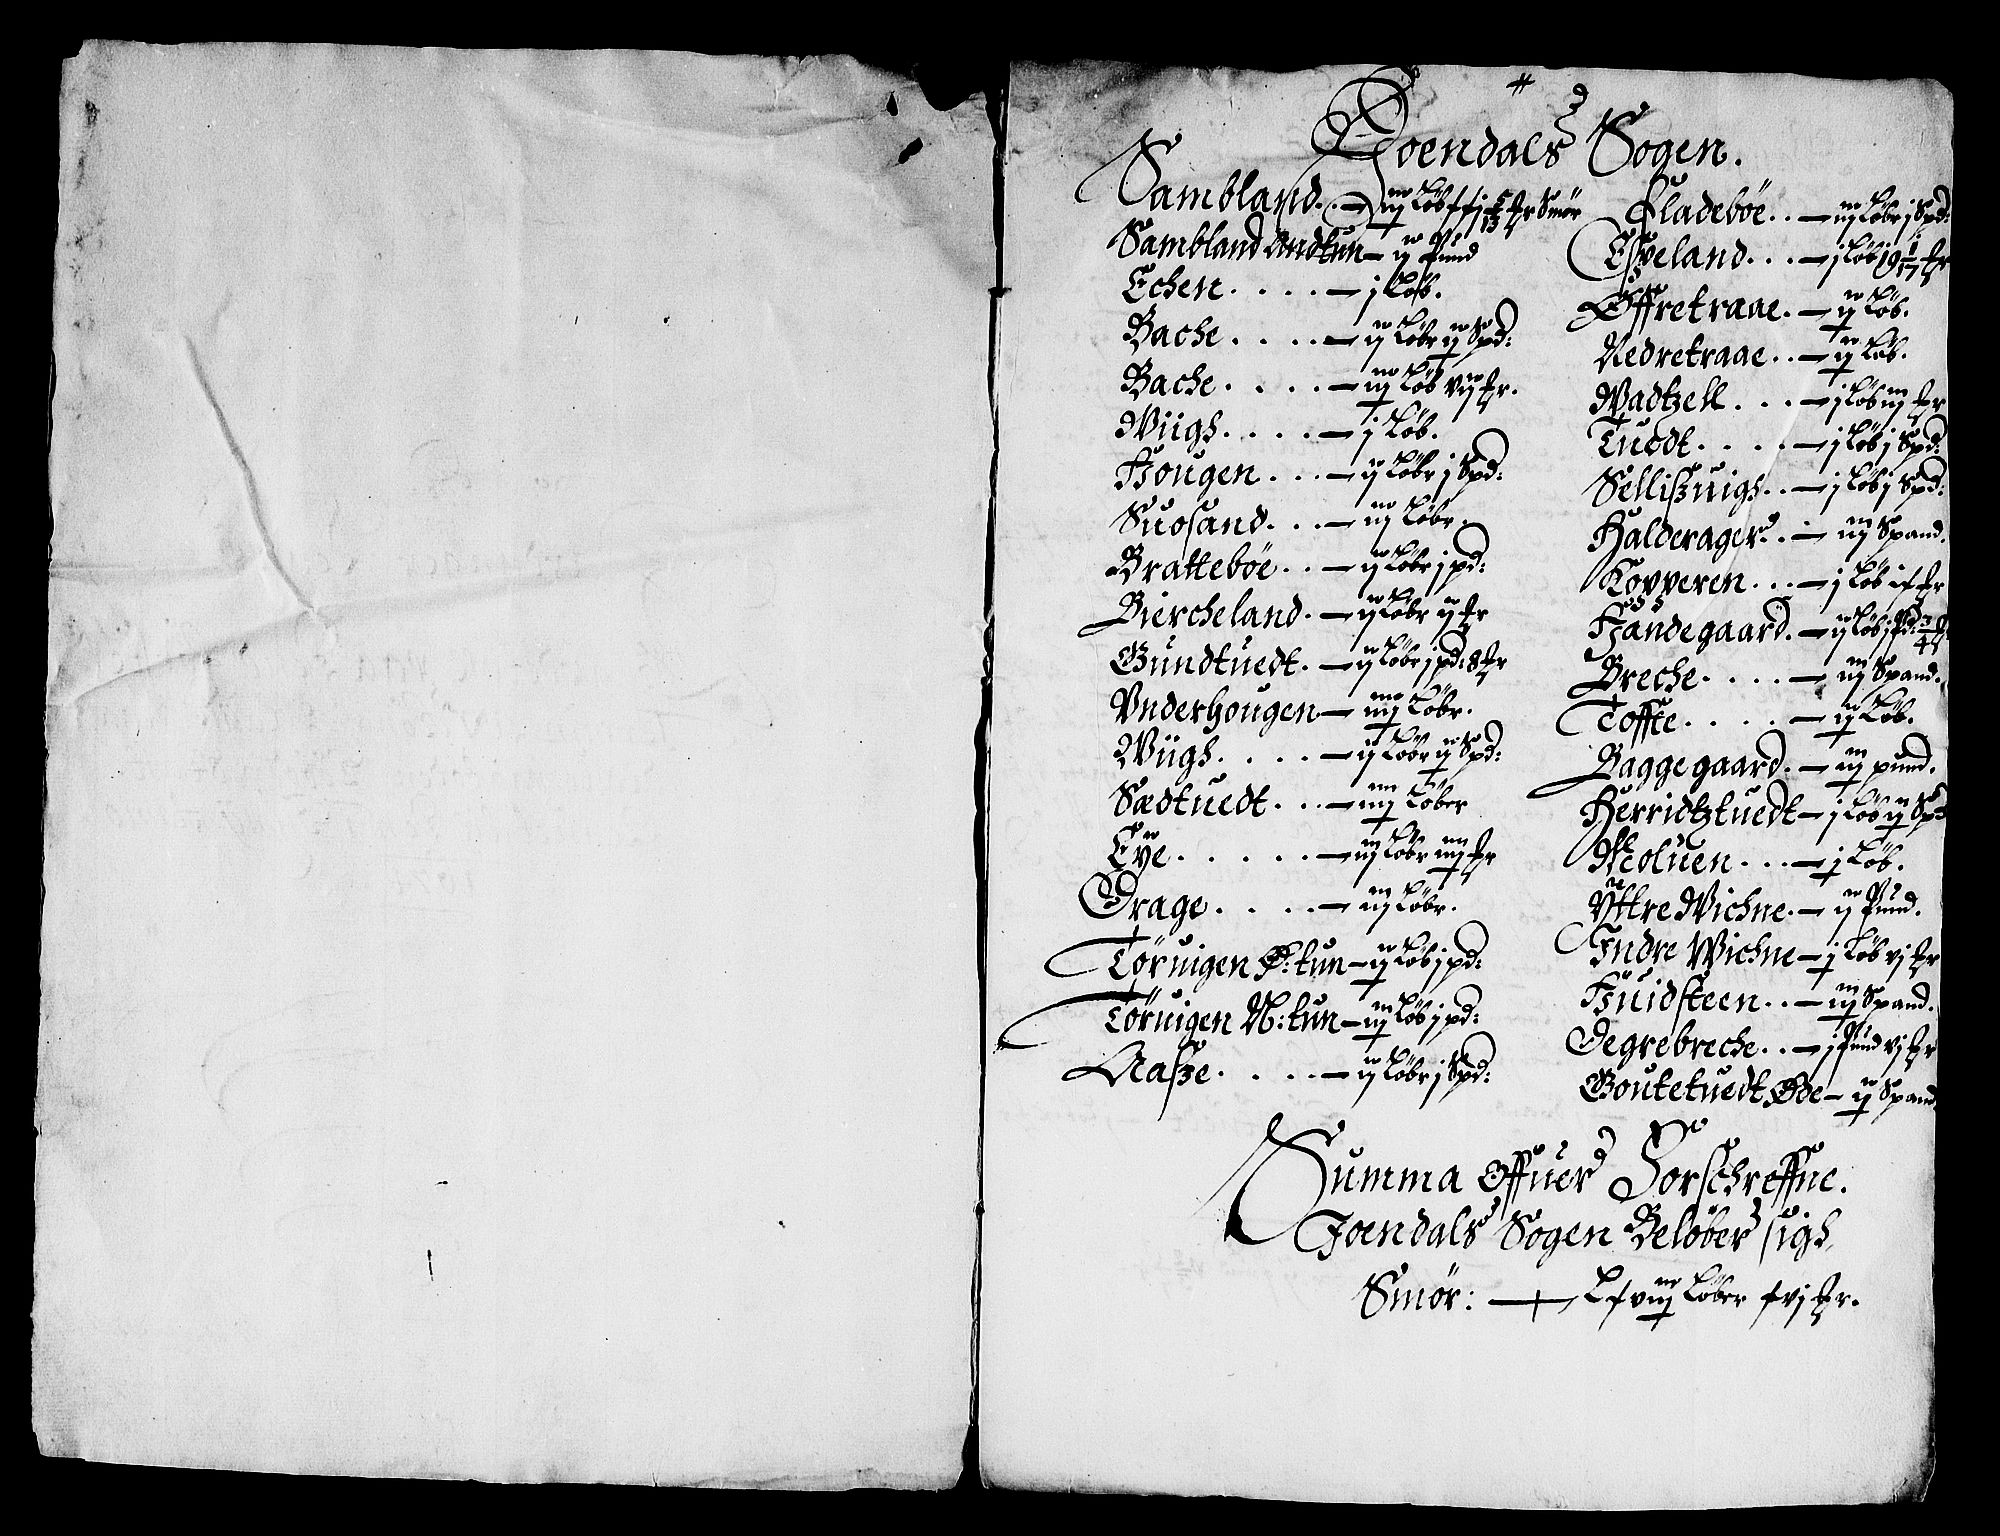 Joendals Sogen.
Sambland. — iij Løb
Sambland Andtun — ij Pund
Echen . . . . — j Løb.
Bache . . . . — ij Løbr ij Spd:
Bache . . . . — iij Løb vij mr.
Wiigh . . . . — j Løb.
Hougen . . . — ij Løbr j Spd:
Suosand. . . — iij Løbr.
Brattebøe . . — ij Løbr j pd:
Biercheland. — ij Løbr ij mr
Gundtuedt. — ij Løbr j pd: 8 mr
Vnderhougen — iiij Løbr.
Wiigh. . . . — ij Løbr ij Spd:
Sædtuedt . . — iiij Løber
Eye . . . . . — iij Løbr iiij mr
Drage . . . . — iij Løbr.
Tøruigen Ø: tun — ij Løb j pd:
Tøruigen N: tun — iij Løb j pd:
Aasze . . . . — ij Løbr j Spd:
Fladebøe . . — iij Løbr j Spd:
Espeland. . . — j Løb 19 1/17 mr
Øffretraae. — ij Løb.
Nedretraae . . — ij Løb.
Wadtzell . . . — j Løb iij mr
Tuedt . . . . — j Løb j Spd:
Selliszuigh . . — j Løb j Spd:
Halderager . . — iij Spand.
Kopperen . . . — j Løb ix mr
Handegaard. — ij Løb j Pd: 3/4 mr
Breche . . . . — iij Spand.
Toffte . . . . — ij Løb.
Baggegaard. — iij pund.
Herridtztuedt — j Løb ij Spd
Meoluen . . . — j Løb.
Yttre Wichne. — ij Pund.
Indre Wichne — j Løb vj mr
Huidsteen . . — iij Spand.
Degrebreche . . — j Pund vj mr
Goutetuedt Øde — ij Spand.
Summa Offuer Forschreffne.
Joendals Sogen Beløber sigh
Smør: — Lxviij Løber xvj mr.